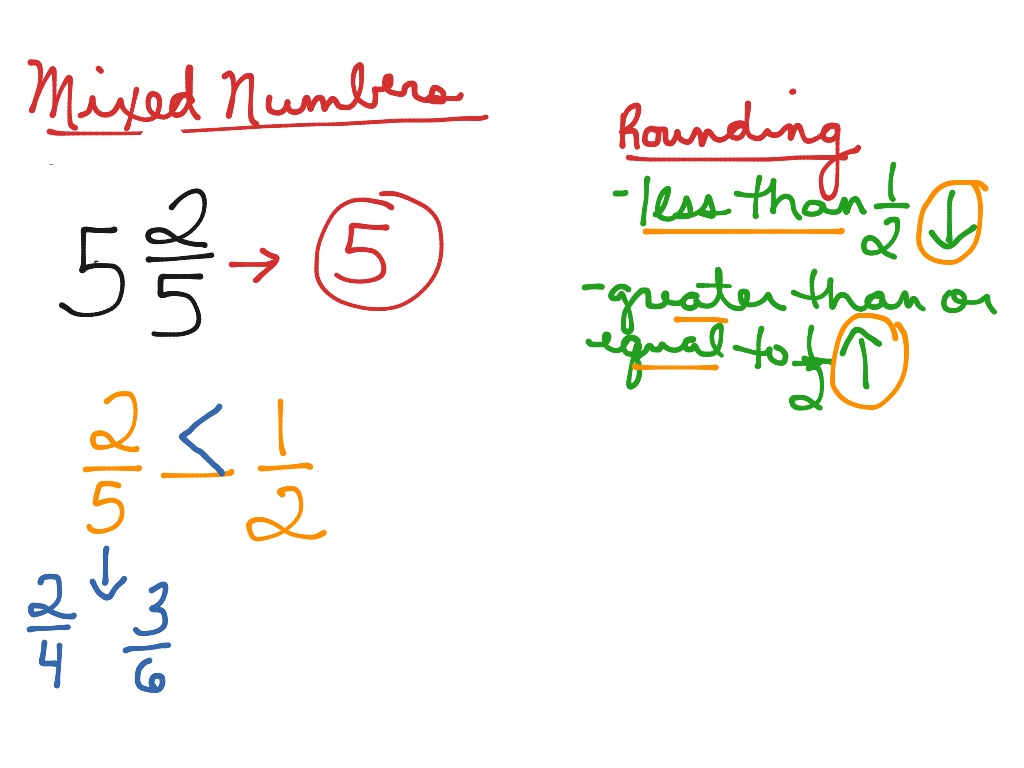 Mixed Numbers
5 2/5 → 5
2/5 < 1/2
↓
2/4 3/6
Rounding
- less than 1/2 ↓
- greater than or
equal to 1/2 ↑